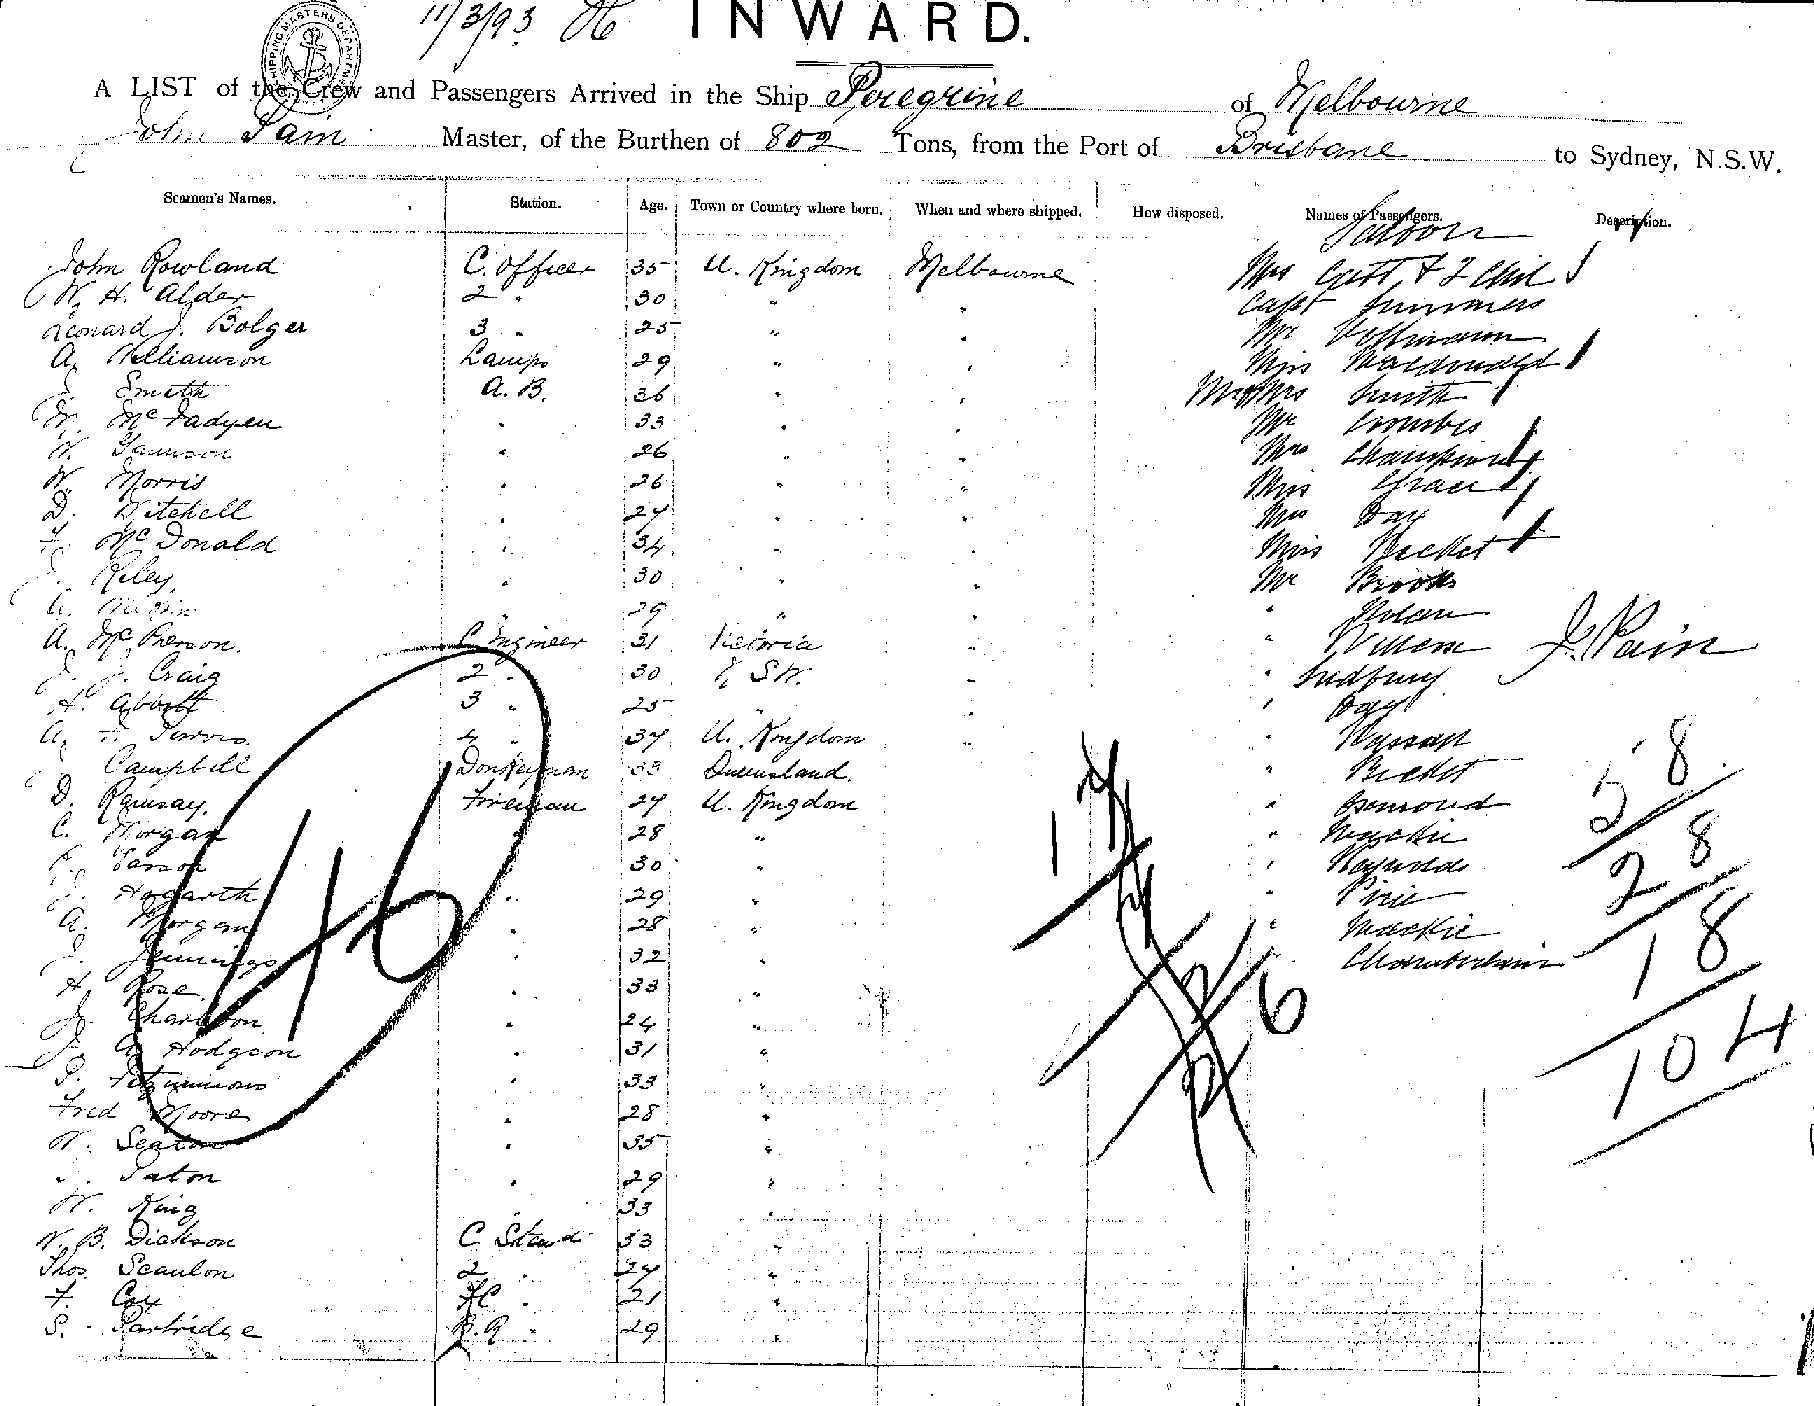 11/3/93 INWARD.
SHIPPING MASTERS DEPARTMENT
A LIST of the Crew and Passengers Arrived in the Ship Peregrine of Melbourne
John Pain Master, of the Burthen of 802 Tons, from the Port of Brisbane to Sydney, N.S.W.
Seamen's Names. Station. Age. Town or Country where born. When and where shipped. How disposed. Names of Passengers. Description.
Saloon
John Rowland C. Officer 35 U. Kingdom Melbourne Mrs & 2 Chil
W. H. Alder 2 " 30 " " Capt Summers
Leonard J. Bolger 3 " 25 " " Mr Hoffmann
A. Williamson Lamps 29 " " Miss Macdonald
J. Smith A. B. 36 " " Mr Mrs Smith
McFadyen " 33 " " Mr Coombes
W. " 26 " " Mrs Champion
W. Norris " 26 " " Miss Grace
D. Mitchell " 27 " " Mrs Day
F. McDonald " 34 " " Miss Becket
J. Riley " 30 " " Mr Brooks
A. " 29 " " " Nolan
A. McPherson C Engineer 31 Victoria " "
J. J. Craig 2 " 30 N S W. " " Sudbury
H. Abbott 3 " 25 " " " Day
A. F. 4 " 37 U. Kingdom " "
Campbell Donkeyman 33 Queensland " Becket
D. Ramsay Fireman 27 U. Kingdom " Osmond
C. Morgan " 28 " " Mackie
" 30 " " Reynolds
J. Hogarth " 29 " " Pirie
A. Morgan " 28 " " Mackie
J. Jennings " 32 " " Chamberlain
H. Rose " 33 "
J. Charlton " 24 "
J. A. Hodgson " 31 "
Fitzsimmons " 33 "
Fred Moore " 28 "
W. Seaton " 35 "
J. Paton " 29 "
W. King " 33 "
W. B. Dickson C Stewd 53 "
Thos. Scanlon 2 " 27 "
F. Cox " 21 "
S. Partridge " 29 "
J. Pain
46
1
6
58
28
18
104